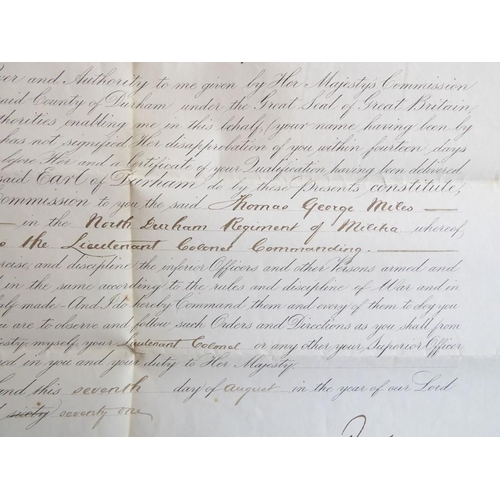 and Authority to me given by Her Majestys Commission
said County of Durham under the Great Seal of Great Britain
enabling me in this behalf (your name having been by
has not signified Her disapprobation of you within fourteen days
Her and a Certificate of your Qualification having been delivered
said Earl of Durham do by these Presents constitute,
Commission to you the said Thomas George Miles —
— in the North Durham Regiment of Militia whereof
the Lieutenant Colonel Commanding. —
and discipline the inferior Officers and other Persons armed and
in the same according to the rules and discipline of War and in
made – And I do hereby Command them and every of them to obey you
are to observe and follow such Orders and Directions as you shall from
myself, your Lieutenant Colonel or any other your Superior Officer
in you and your duty to Her Majesty
and this seventh day of August in the year of our Lord
sixty seventy one